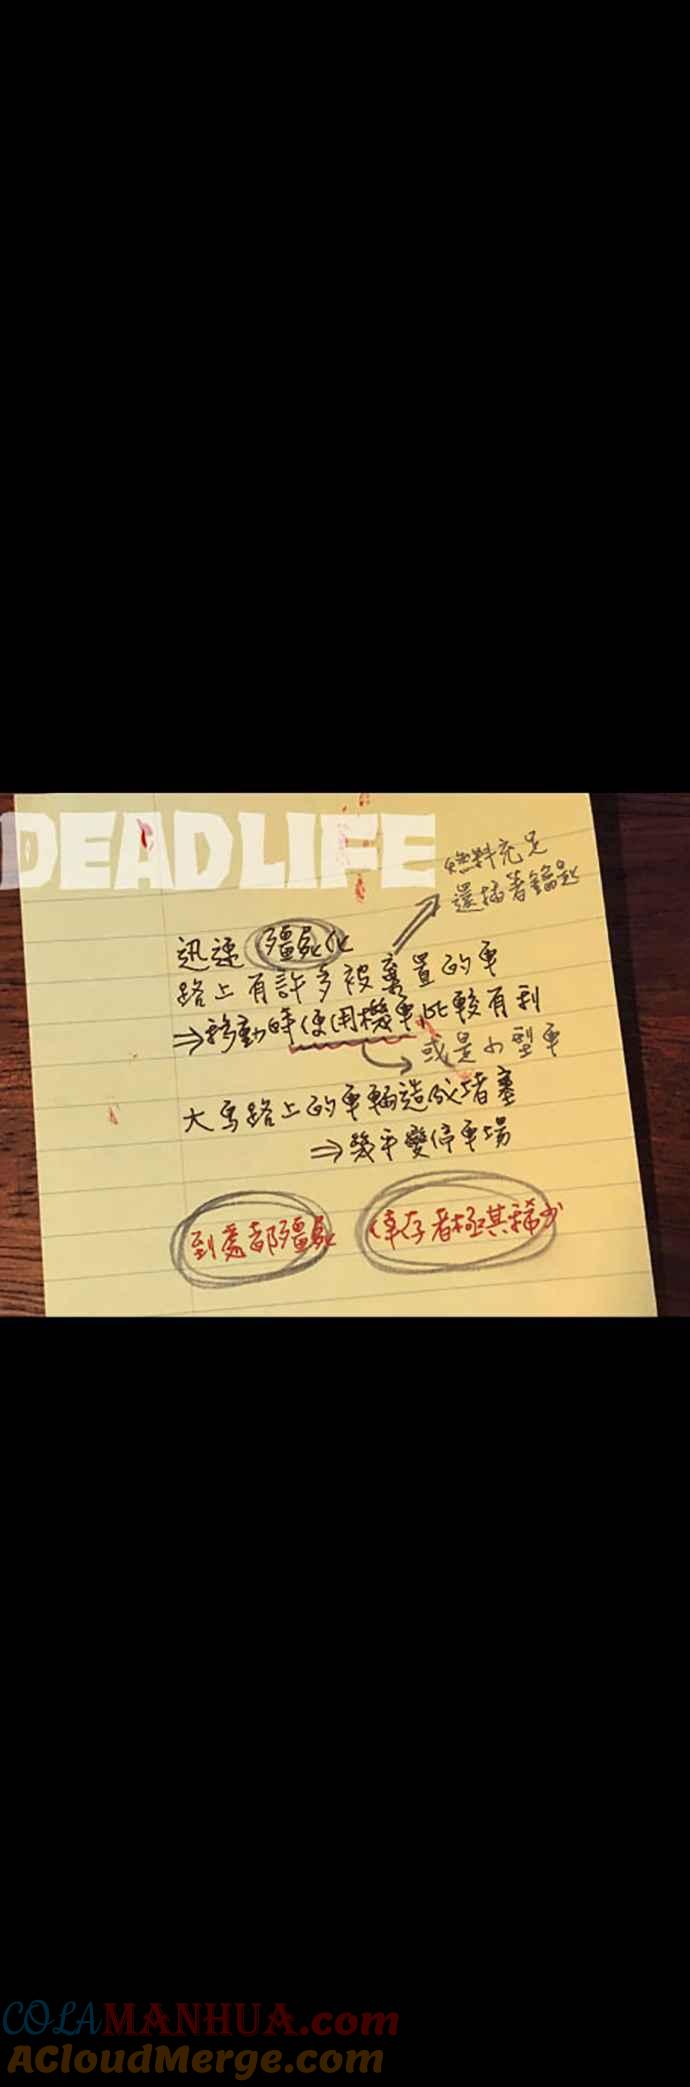 DEADLIFE
燃料充足
還插著鑰匙
迅速殭屍化
路上有許多被棄置的車
⇒移動時使用機車比較有利
或是小型車
大馬路上的車輛造成堵塞
⇒幾乎變停車場
到處都殭屍
倖存者極其稀少
COLAMANHUA.com
ACloudMerge.com